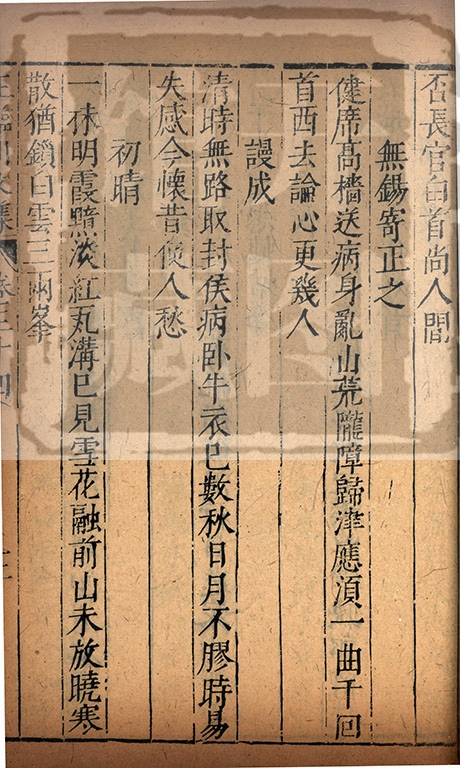 否長官白首尚人間
無錫寄正之
健席髙檣送病身亂山荒隴障歸津應湏一曲千回
首西去論心更幾人
謾成
清時無路取封侯病卧牛衣已數秋日月不膠時易
失感今懷昔使人愁
初晴
一抹明霞黯淡紅瓦溝已見雪花融前山未放曉寒
散猶鎖白雲三兩峯